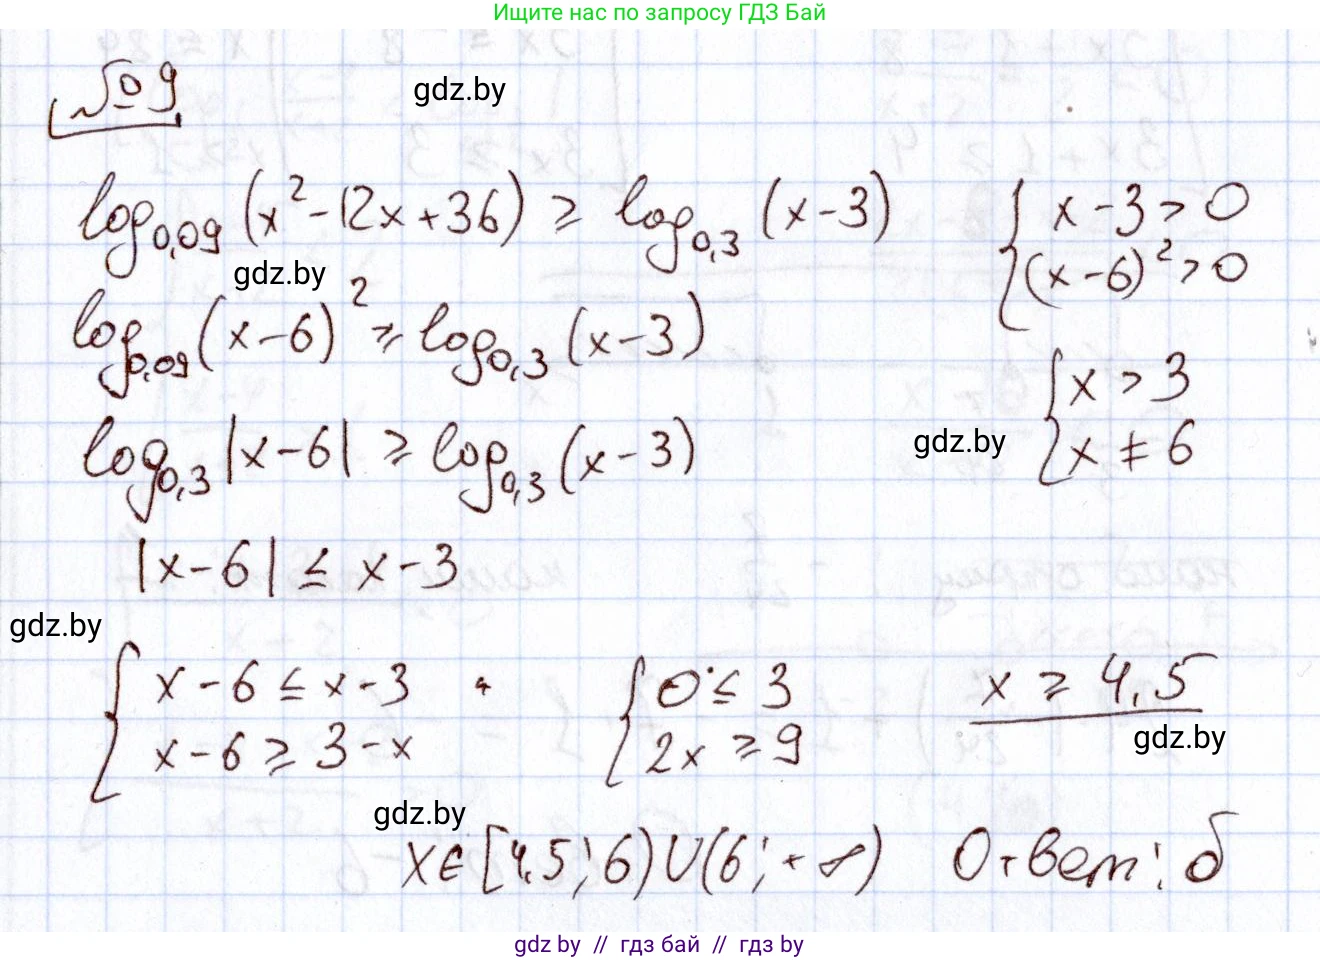 Ищите нас по запросу ГДЗ Бай
№ 9
gdz.by
log₀,₀₉ (x² - 12x + 36) ≥ log₀,₃ (x - 3)
{ x - 3 > 0
(x - 6)² > 0
gdz.by
log₀,₀₉ (x - 6)² ≥ log₀,₃ (x - 3)
{ x > 3
x ≠ 6
gdz.by
log₀,₃ |x - 6| ≥ log₀,₃ (x - 3)
|x - 6| ≤ x - 3
gdz.by
{ x - 6 ≤ x - 3
x - 6 ≥ 3 - x
{ 0 ≤ 3
2x ≥ 9
x ≥ 4,5
gdz.by
gdz.by
x ∈ [4,5; 6) ∪ (6; +∞) Ответ: б
gdz by // гдз бай // гдз by